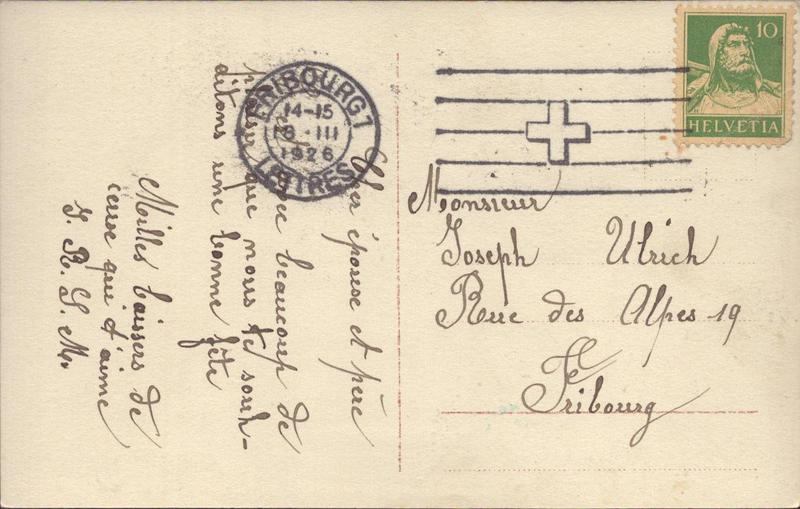 FRIBOURG 1
14-15
18·III
1926
LETTRES
10
HELVETIA
Cher épouse et père
avec beaucoup de
plaisir que nous te souh-
ditons une bonne fête
Milles baisers de
ceuse que t'aime
J. R. S. M.
Monsieur
Joseph Ulrich
Rue des Alpes 19
Fribourg